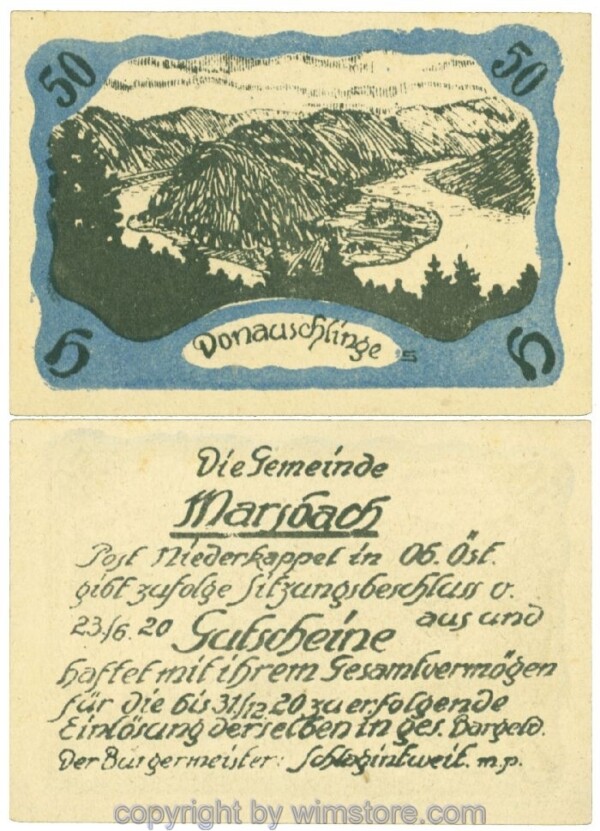 50 50
Donauschlinge
h h
Die Gemeinde
Marsbach
Post Niederkappel in Ob. Öst.
gibt zufolge Sitzungsbeschluss v.
23./6. 20 Gutscheine aus und
haftet mit ihrem Gesamtvermögen
für die bis 31./12. 20 zu erfolgende
Einlösung derselben in ges. Bargeld.
Der Burgermeister: Schlagintweit. m.p.
copyright by wimstore.com